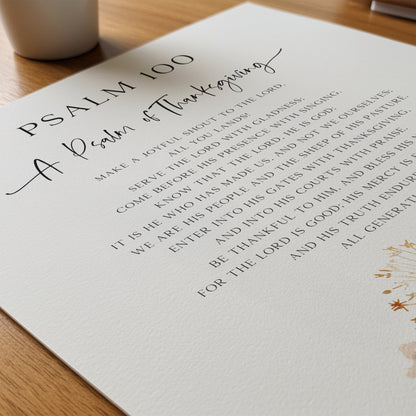 PSALM 100
A Psalm of Thanksgiving
MAKE A JOYFUL SHOUT TO THE LORD,
ALL YOU LANDS!
SERVE THE LORD WITH GLADNESS;
COME BEFORE HIS PRESENCE WITH SINGING.
KNOW THAT THE LORD, HE IS GOD;
IT IS HE WHO HAS MADE US, AND NOT WE OURSELVES;
WE ARE HIS PEOPLE AND THE SHEEP OF HIS PASTURE.
ENTER INTO HIS GATES WITH THANKSGIVING,
AND INTO HIS COURTS WITH PRAISE.
BE THANKFUL TO HIM, AND BLESS HIS
FOR THE LORD IS GOOD; HIS MERCY IS
AND HIS TRUTH ENDUR
ALL GENERATI